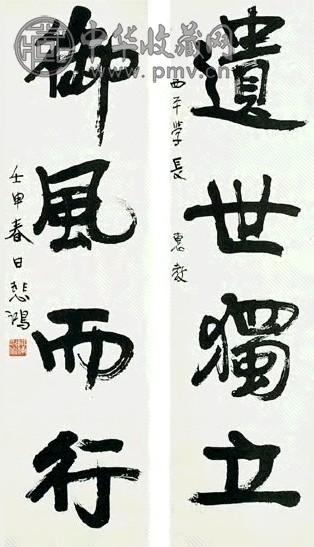 中华收藏网
www.pmv.cn
遺世獨立
西平学長 惠教
御風而行
壬申春日悲鴻